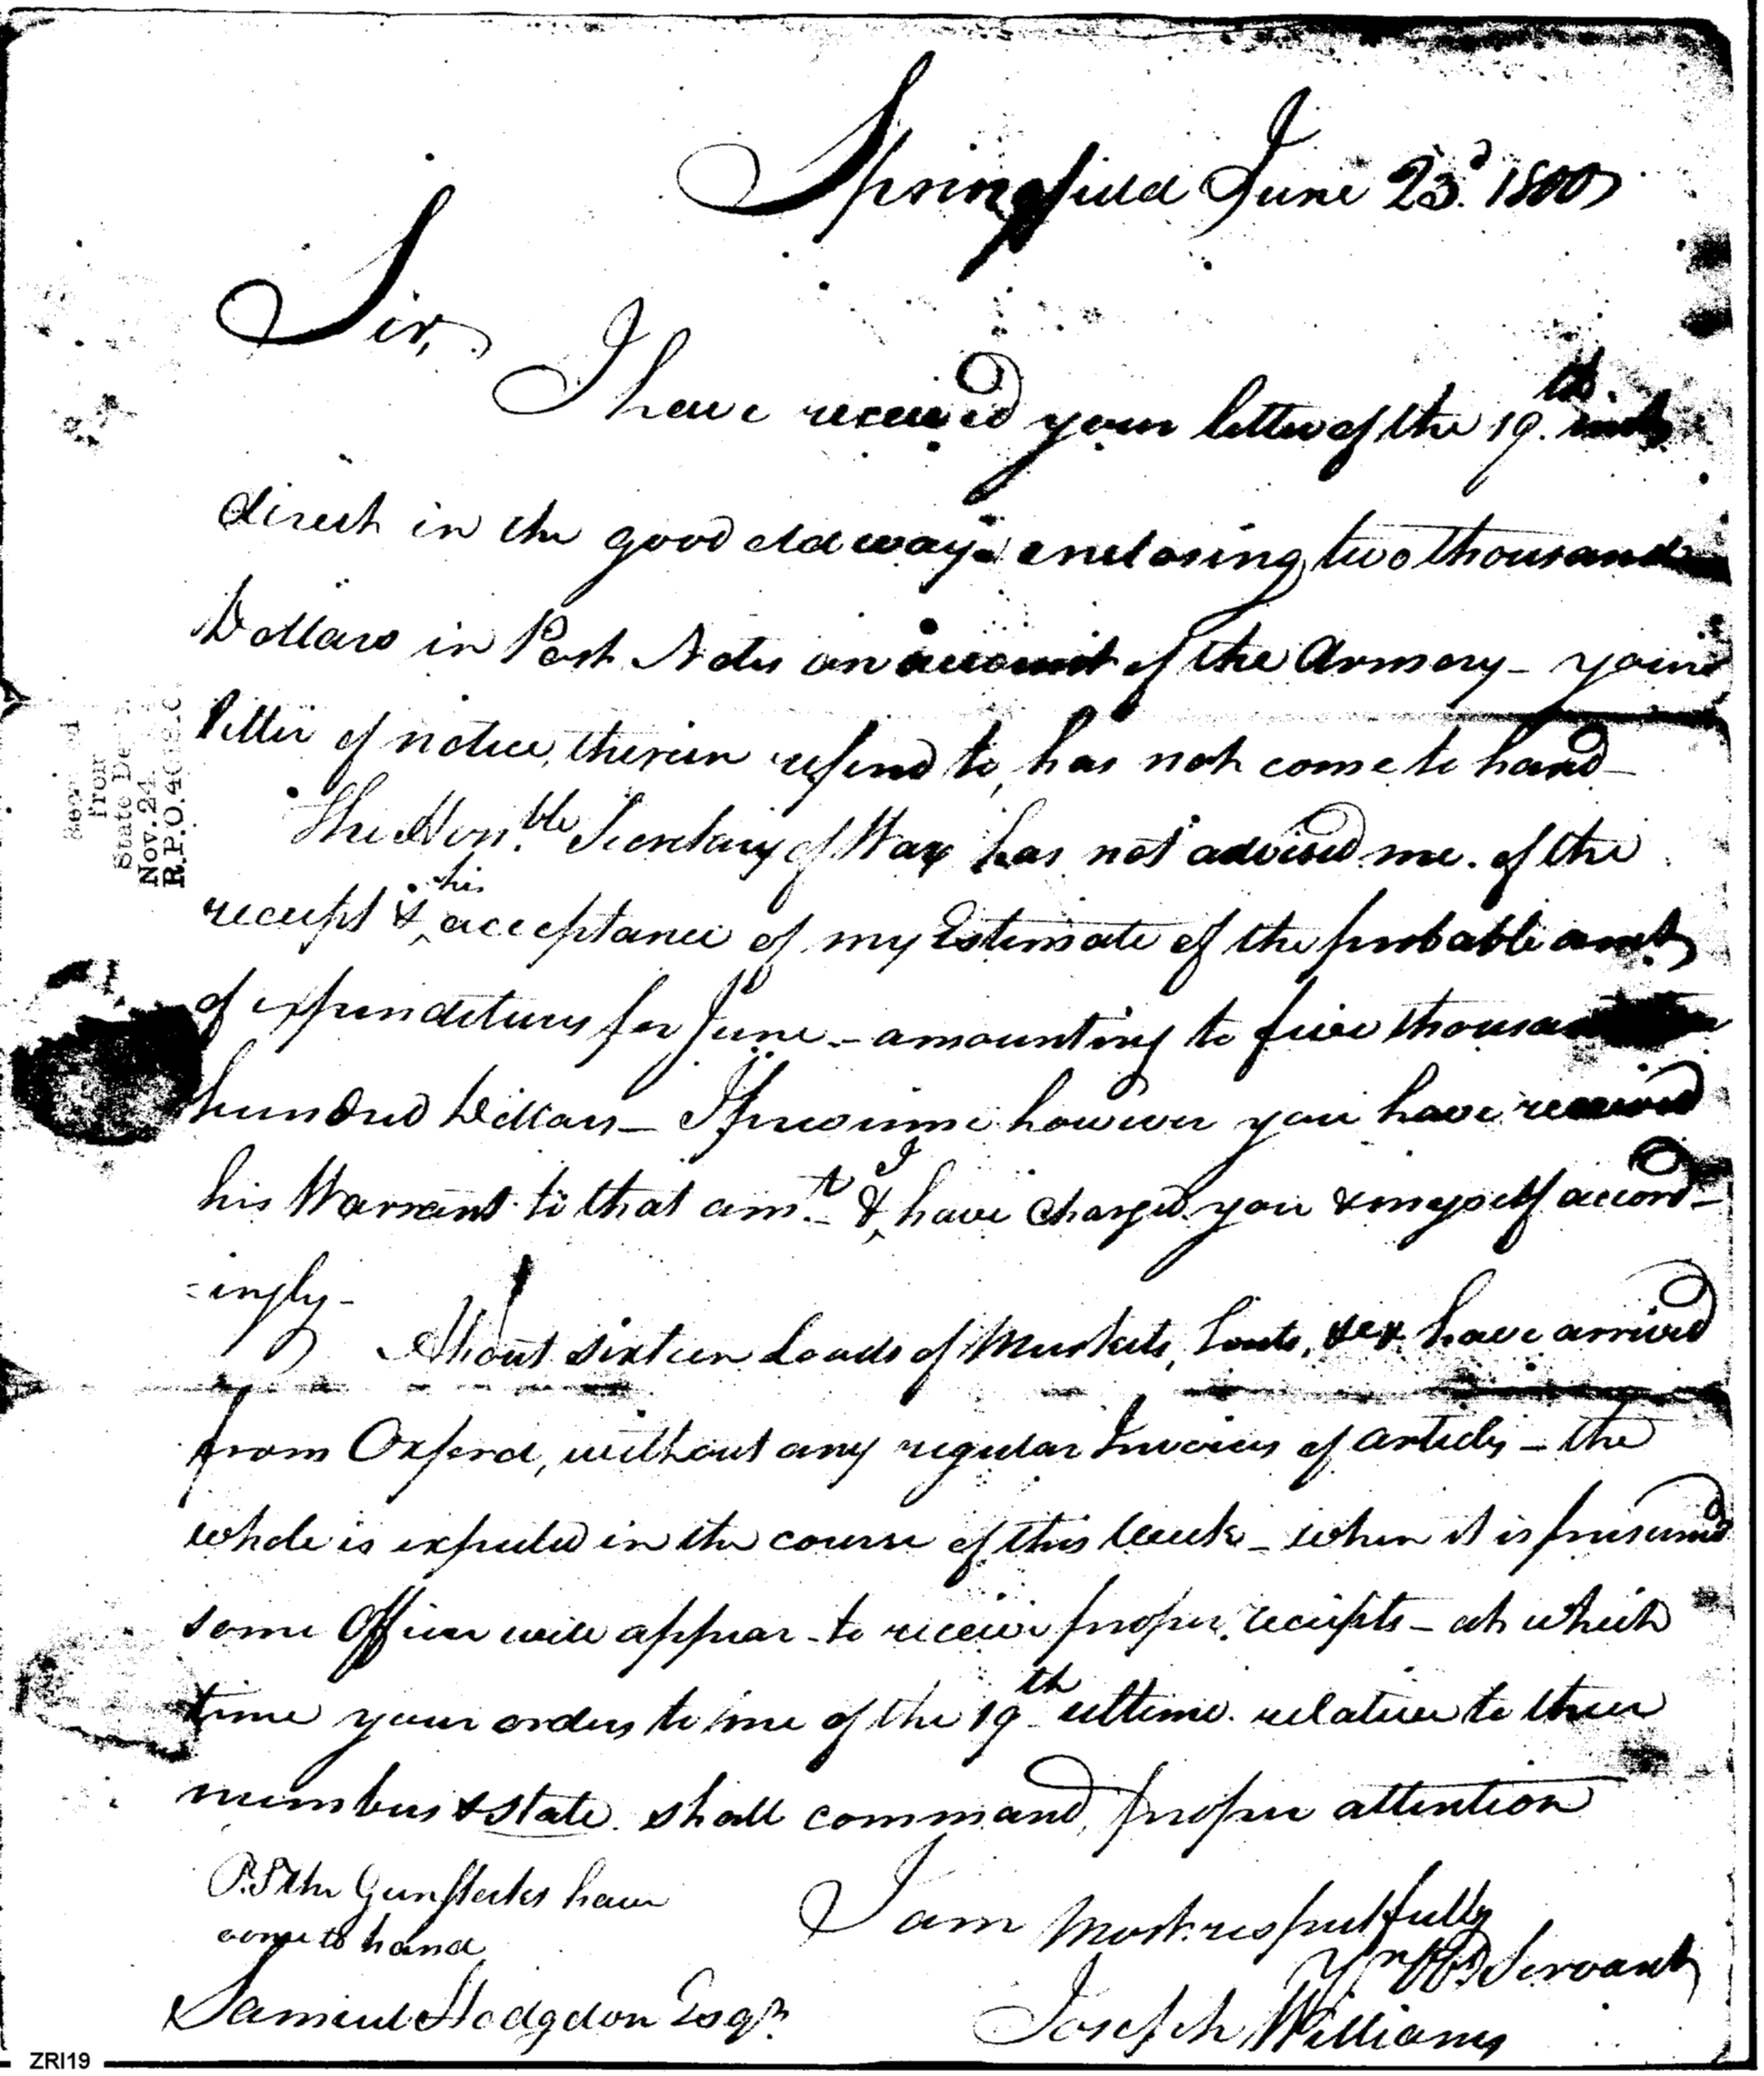 Springfield June 23.d 1800
Sir,
I have received your letter of the 19.th inst
direct in the good old way enclosing two thousand
Dollars in Post Notes on account of the Armory - your
letter of notice, therein referd to, has not come to hand -
The Hon.ble Secretary of War has not advised me. of the
receipt & his acceptance of my Estimate of the probable amt
of expenditures for June - amounting to five thousand
hundred Dollars - I presume however you have received
his Warrant to that am.t & I have charged you & myself accord-
=ingly -
About sixteen Loads of Muskets, Tents, &c& have arrived
from Oxford, without any regular Invoices of articles - the
whole is expected in the course of this week - when it is presumed
some Officer will appear - to receive proper receipts - at which
time your orders to me of the 19th ultimo. relative to their
numbers & state. shall command, proper attention
P.S the Gunflints have
come to hand
I am most respectfully
Yr Servant
Samuel Hodgdon Esqr.
Joseph Williams
from
State De
Nov. 24
R.P.O. 4
ZRI19